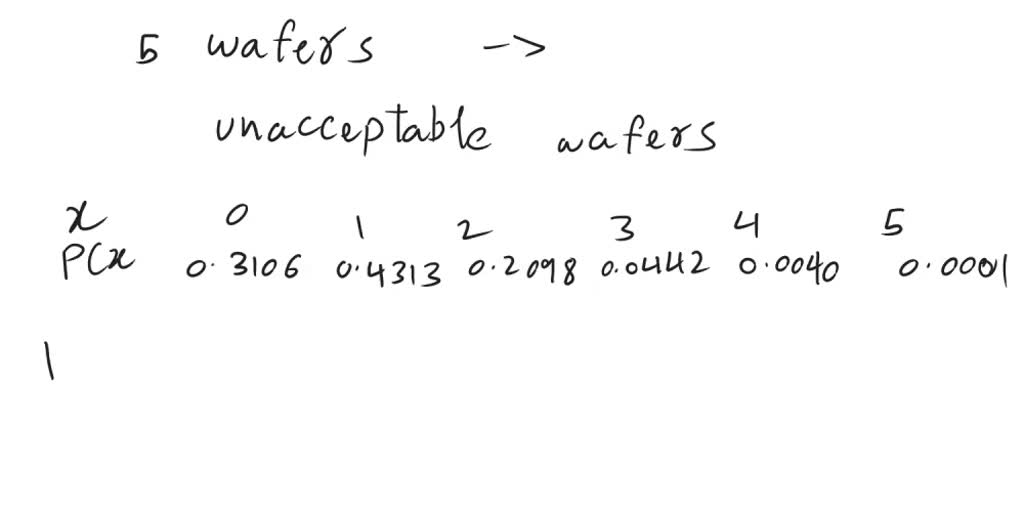 5 wafers ->
unacceptable wafers
x 0 1 2 3 4 5
P(x 0.3106 0.4313 0.2098 0.0442 0.0040 0.0001
1